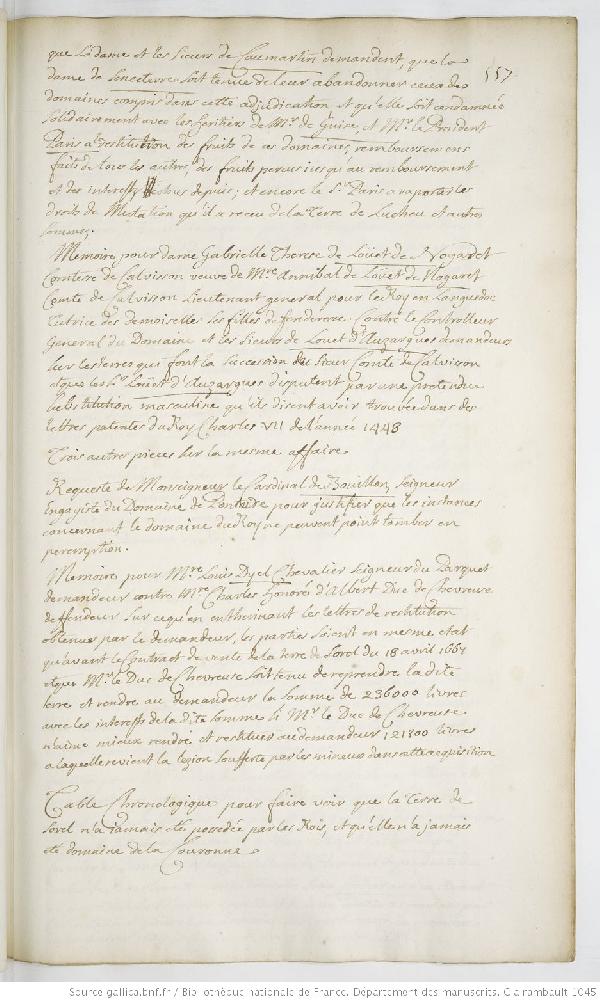 que la dame et les sieurs de Caumartin demandent, que la
557
dame de Senecterre soit tenue de leur abandonner ceux des
domaines compris dans cette adjudication et qu'elle soit condamnée
solidairement avec les heritiers de Mr. de Guise, et Mr. le President
Paris a restitution des fruits de ces domaines, remboursemens
faits de tous les autres, des fruits percus jusqu'au remboursement
et des interests depuis; et encore le Sr. Paris a raporter les
droits de Mutation qu'il a receu de la Terre de Lucheu et autres
sommes.
Memoire pour dame Gabrielle Therese de Loüet de Nogaret
Comtesse de Calvisson veuve de Mre. Annibal de Loüet de Nogaret
Comte de Calvisson Lieutenant general pour le Roy en Languedoc
tutrice des demoiselles ses filles defenderesse Contre le Controlleur
General du Domaine et les sieurs de Louet d'Auzargues demandeurs
sur les terres qui font la succession du sieur Comte de Calvisson
et que les Srs. Loüet d'Auzargues disputent par une pretendue
substitution masculine qu'ils disent avoir trouvée dans des
lettres patentes du Roy Charles VII de l'année 1448
Trois autres pieces sur la mesme affaire.
Requeste de Monseigneur le Cardinal de Bouillon, Seigneur
Engagiste du Domaine de Pontoise pour justifier que les instances
concernant le domaine du Roy ne peuvent point tomber en
peremption.
Memoire pour Mre. Louis Dyel Chevalier Seigneur du Parquet
demandeur contre Mre. Charles Honoré d'Albert Duc de Chevreuse
deffendeur sur ce qu'en entherinant les lettres de restitution
obtenues par le demandeur, les parties soient en mesme etat
qu'avant le Contract de vente de la terre de Sorel du 18 avril 1667
et que Mr. le Duc de Chevreuse soit tenu de reprendre la dite
terre et rendre au demandeur la somme de 236000 livres
avec les interests de la dite somme si Mr. le Duc de Chevreuse
n'aime mieux rendre et restituer au demandeur 121800 livres
a laquelle revient la lezion soufferte par les mineurs dans cette acquisition
Table Chronologique pour faire voir que la Terre de
Sorel n'a jamais eté possedée par les Rois, et qu'elle n'a jamais
eté domaine de la Couronne
Source gallica.bnf.fr / Bibliothèque nationale de France. Département des manuscrits. Clairambault 1045